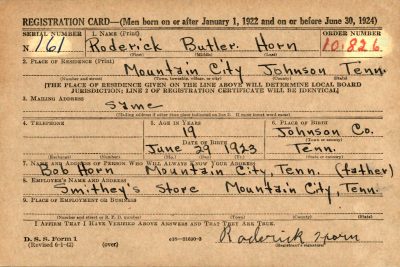 REGISTRATION CARD—(Men born on or after January 1, 1922 and on or before June 30, 1924)
SERIAL NUMBER 1. NAME (Print) ORDER NUMBER
N 161 Roderick Butler Horn 10,826
(First) (Middle) (Last)
2. PLACE OF RESIDENCE (Print)
Mountain City Johnson Tenn.
(Number and street) (Town, township, village, or city) (County) (State)
[THE PLACE OF RESIDENCE GIVEN ON THE LINE ABOVE WILL DETERMINE LOCAL BOARD
JURISDICTION; LINE 2 OF REGISTRATION CERTIFICATE WILL BE IDENTICAL]
3. MAILING ADDRESS
Same
(Mailing address if other than place indicated on line 2. If same insert word same)
4. TELEPHONE 5. AGE IN YEARS 6. PLACE OF BIRTH
19 Johnson Co.
DATE OF BIRTH (Town or county)
June 29 1923 Tenn.
(Exchange) (Number) (Mo.) (Day) (Yr.) (State or country)
7. NAME AND ADDRESS OF PERSON WHO WILL ALWAYS KNOW YOUR ADDRESS
Bob Horn Mountain City, Tenn. (father)
8. EMPLOYER'S NAME AND ADDRESS
Smithey's Store Mountain City, Tenn.
9. PLACE OF EMPLOYMENT OR BUSINESS
(Number and street or R. F. D. number) (Town) (County) (State)
I AFFIRM THAT I HAVE VERIFIED ABOVE ANSWERS AND THAT THEY ARE TRUE.
D. S. S. Form 1
(Revised 6-1-42) (over) Roderick Horn
(Registrant's signature)